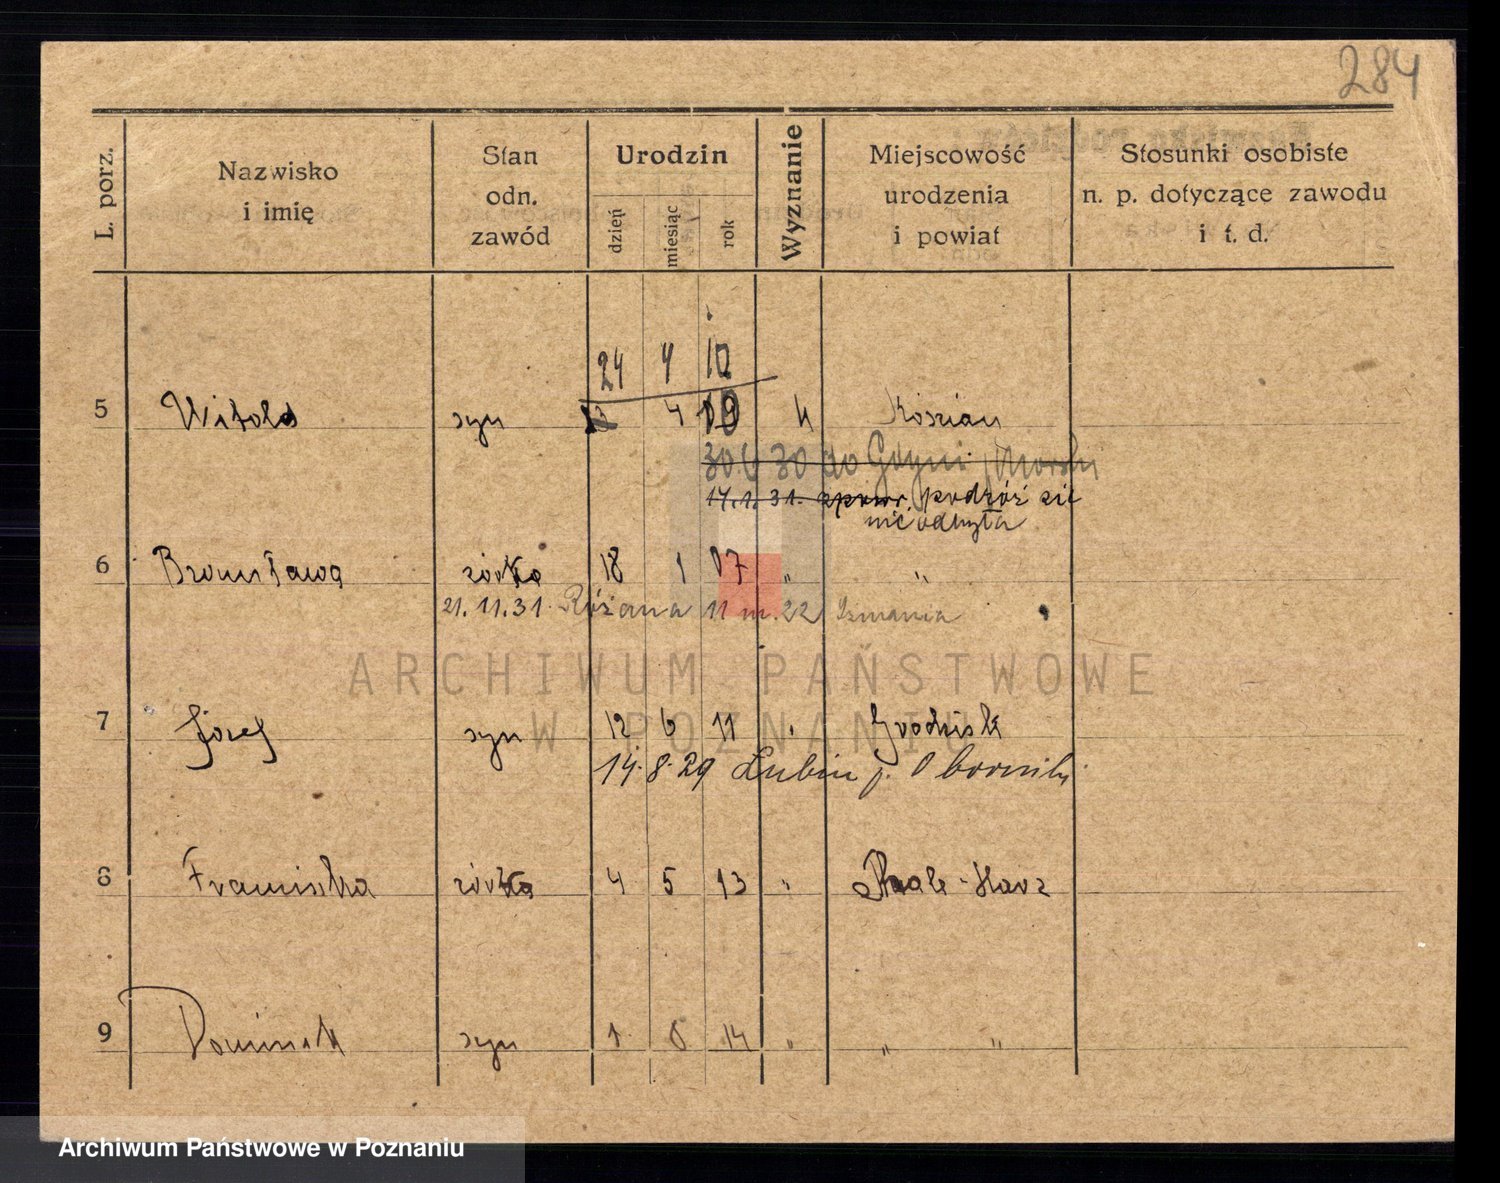 284
L. porz.
Nazwisko
i imię
Stan
odn.
zawód
Urodzin
dzień
miesiąc
rok
Wyznanie
Miejscowość
urodzenia
i powiat
Stosunki osobiste
n. p. dotyczące zawodu
i t. d.
24 4 10
5 Witold syn 4 09 k Kościan
30 6 30 do Gdyni
17.1.31. podróż
nie odbyła
6 Bronisława córka 18 1 07 „ „
21.11.31 Różana 11 m. 22
7 Józef syn 12 6 11 Grodzisk
14.8.29 Lubin p. Oborniki
8 Franciszka córka 4 5 13 „ Thale-Harz
9 Dominik syn 1 8 14 „ „ „
ARCHIWUM PAŃSTWOWE
W POZNANIU
Archiwum Państwowe w Poznaniu